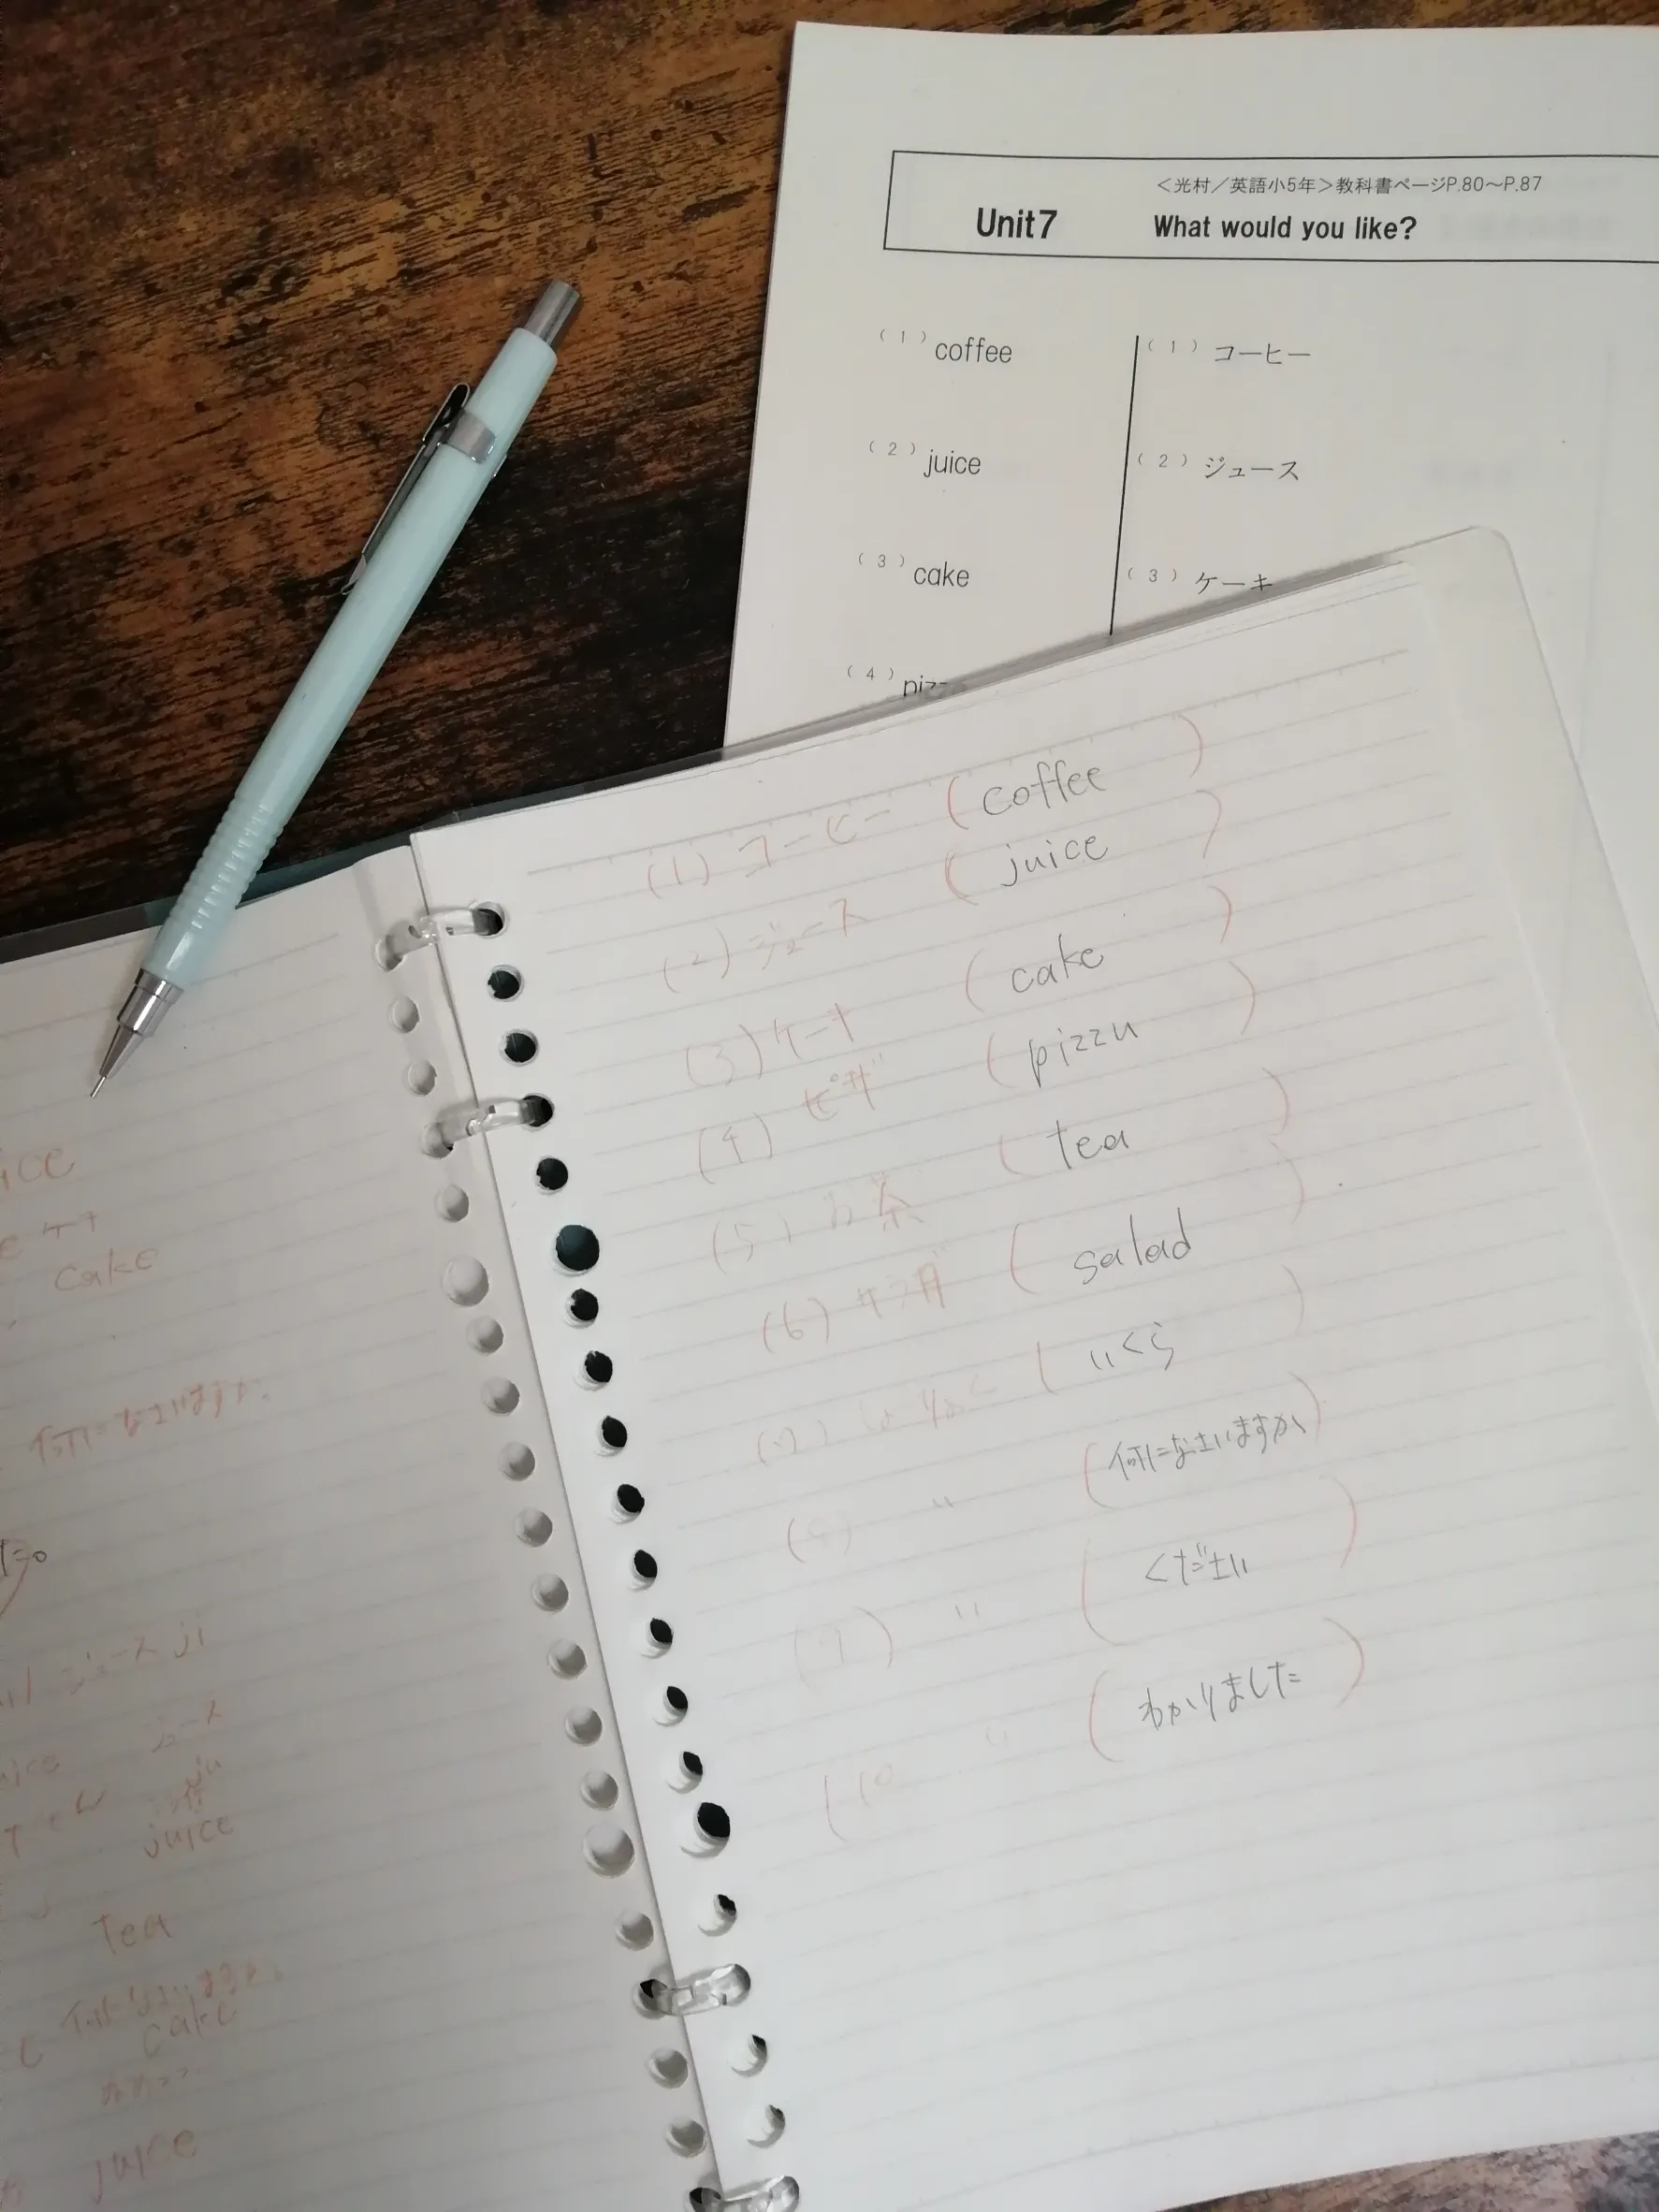 <光村/英語小5年>教科書ページP.80〜P.87
Unit7 What would you like?
(1) coffee (1) コーヒー
(2) juice (2) ジュース
(3) cake (3) ケーキ
(4)
(1) コーヒー (coffee)
(2) ジュース (juice)
(3) ケーキ (cake)
(4) ピザ (pizza)
(5) お茶 (tea)
(6) サラダ (salad)
(7) (いくら)
(8) 〃 (何になさいますか)
(9) 〃 (ください)
(10 〃 (わかりました)
ケーキ
cake
何になさいますか。
ジュース ji
ジュース
ju
juice
tea
何になさいますか。
cake
juice